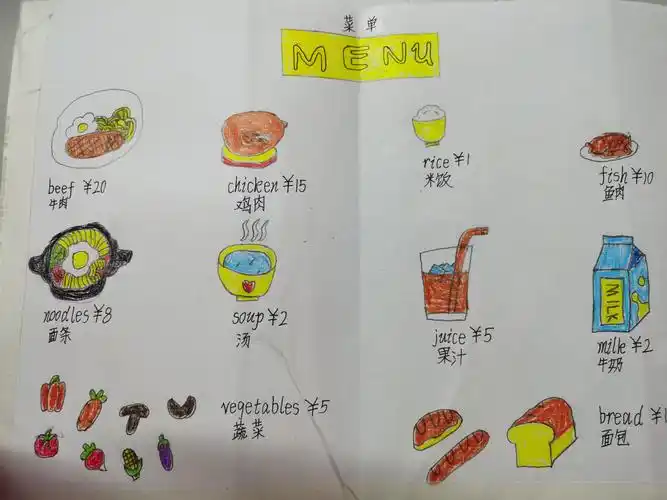 菜单
MENU
beef ¥20
牛肉
chicken ¥15
鸡肉
rice ¥1
米饭
fish ¥10
鱼肉
noodles ¥8
面条
soup ¥2
汤
juice ¥5
果汁
MILK
milk ¥2
牛奶
vegetables ¥5
蔬菜
bread
面包